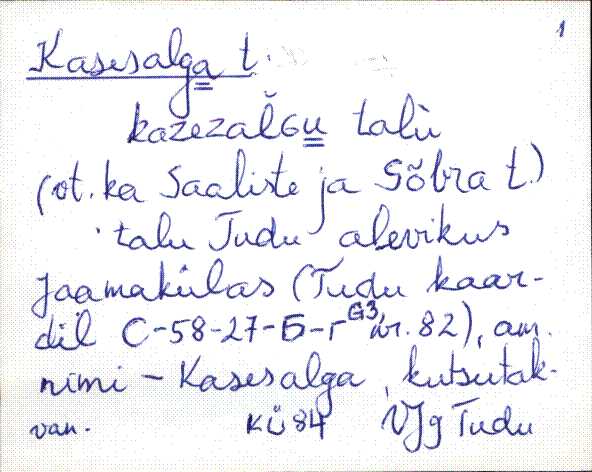 1
Kasesalga t.
kazezaĺGu talù
(vt. ka Saaliste ja Sõbra t.)
talu Tudu alevikus
Jaamakülas (Tudu kaar-
dil C-58-27-Б-г G3 nr. 82), am.
nimi - Kasesalga, kutsutak-
van. KÜ84 VJg Tudu